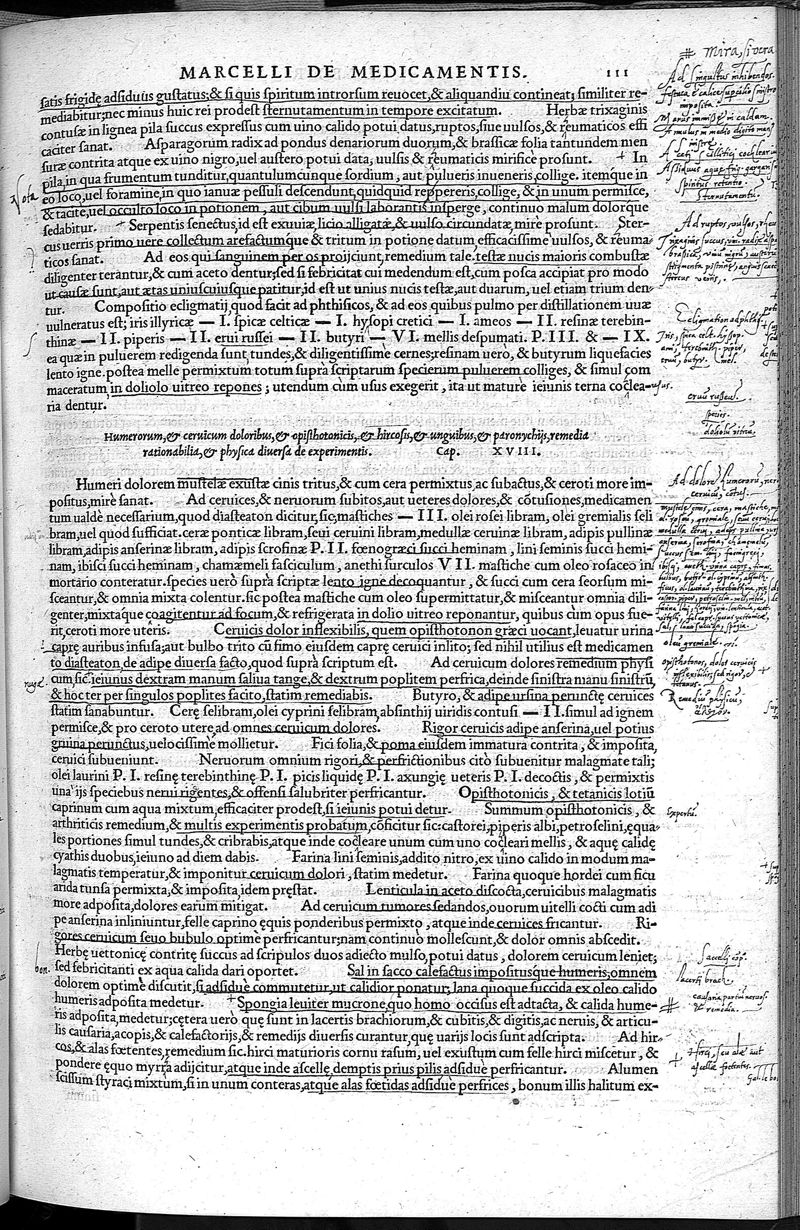 MARCELLI DE MEDICAMENTIS. 111
satis frigidę adsiduus gustatus; & si quis spiritum introrsum reuocet, & aliquandiu contineat; similiter re-
mediabitur; nec minus huic rei prodest sternutamentum in tempore excitatum. Herbæ trixaginis
contusæ in lignea pila succus expressus cum uino calido potui datus, ruptos, siue uulsos, & rẽumaticos effi
caciter sanat. Asparagorum radix ad pondus denariorum duorum, & brassicæ folia tantundem men
suræ contrita atque ex uino nigro, uel austero potui data; uulsis & rẽumaticis mirificè prosunt. In
pila, in qua frumentum tunditur, quantulumcunque sordium, aut pulueris inueneris, collige. itemque in
eo loco, uel foramine, in quo ianuæ pessuli descendunt, quidquid reppereris, collige, & in unum permisce,
& tacite, uel occulto loco in potionem, aut cibum uulsi laborantis insperge, continuo malum dolorque
sedabitur. Serpentis senectus, id est exuuiæ, licio alligatæ, & uulso circundatæ, mire prosunt. Ster-
cus uerris primo uere collectum arefactumque & tritum in potione datum, efficacissime uulsos, & reuma-
ticos sanat. Ad eos qui sanguinem per os proijciunt, remedium tale. testæ nucis maioris combustæ
diligenter terantur, & cum aceto dentur; sed si febricitat cui medendum est, cum posca accipiat pro modo
ut causæ sunt, aut ætas uniuscuiusque patitur, id est ut unius nucis testæ, aut duarum, uel etiam trium den-
tur. Compositio ecligmatij, quod facit ad phthisicos, & ad eos quibus pulmo per distillationem uuæ
uulneratus est; iris illyricæ — I. spicæ celticæ — I. hysopi cretici — I. ameos — II. resinæ terebin-
thinæ — II. piperis — II. erui russei — II. butyri — VI. mellis despumati. P. III. & — IX.
ea quæ in puluerem redigenda sunt, tundes, & diligentissime cernes; resinam uero, & butyrum liquefacies
lento igne. postea melle permixtum totum supra scriptarum specierum puluerem colliges, & simul com
maceratum in doliolo uitreo repones; utendum cùm usus exegerit, ita ut mature ieiunis terna coclea-
ria dentur.
Humerorum, & ceruicum doloribus, & opisthotonicis, & hircosis, & unguibus, & paronychijs, remedia
rationabilia, & physica diuersa de experimentis. Cap. XVIII.
Humeri dolorem mustelæ exustæ cinis tritus, & cum cera permixtus, ac subactus, & ceroti more im-
positus, mirè sanat. Ad ceruices, & neruorum subitos, aut ueteres dolores, & cõtusiones, medicamen
tum ualdè necessarium, quod diasteaton dicitur, sic; mastiches — III. olei rosei libram, olei gremialis seli
bram, uel quod sufficiat. ceræ ponticæ libram, seui ceruini libram, medullæ ceruinæ libram, adipis pullinæ
libram, adipis anserinæ libram, adipis scrofinæ P. II. fœnogræci succi heminam, lini seminis succi hemi-
nam, ibisci succi heminam, chamæmeli fasciculum, anethi surculos VII. mastiche cum oleo rosaceo in
mortario conteratur. species uerò suprà scriptæ lento igne decoquantur, & succi cum cera seorsum mi-
sceantur, & omnia mixta colentur. sic postea mastiche cum oleo supermittatur, & misceantur omnia dili-
genter; mixtaque coagitentur ad focum, & refrigerata in dolio uitreo reponantur, quibus cùm opus fue-
rit, ceroti more uteris. Ceruicis dolor inflexibilis, quem opisthotonon græci uocant, leuatur urina
caprę auribus infusa; aut bulbo trito cũ fimo eiusdem caprę ceruici inlito; sed nihil utilius est medicamen
to diasteaton, de adipe diuersa facto, quod suprà scriptum est. Ad ceruicum dolores remedium physi
cum sic. ieiunus dextram manum saliua tange, & dextrum poplitem perfrica, deinde sinistra manu sinistrũ,
& hoc ter per singulos poplites facito, statim remediabis. Butyro, & adipe ursina perunctę ceruices
statim sanabuntur. Cerę selibram, olei cyprini selibram, absinthij uiridis contusi — II. simul ad ignem
permisce, & pro ceroto utere, ad omnes ceruicum dolores. Rigor ceruicis adipe anserina, uel potius
gruina perunctus, uelocissime mollietur. Fici folia, & poma eiusdem immatura contrita, & imposita,
ceruici subueniunt. Neruorum omnium rigori, & perfrictionibus citò subuenitur malagmate tali;
olei laurini P. I. resinę terebinthinę P. I. picis liquidę P. I. axungię ueteris P. I. decoctis, & permixtis
una ijs speciebus nerui rigentes, & offensi salubriter perfricantur. Opisthotonicis, & tetanicis lotiũ
caprinum cum aqua mixtum, efficaciter prodest, si ieiunis potui detur. Summum opisthotonicis, &
arthriticis remedium, & multis experimentis probatum, cõficitur sic: castorei, piperis albi, petroselini, ęqua-
les portiones simul tundes, & cribrabis, atque inde cocleare unum cum uno cocleari mellis, & aquę calidę
cyathis duobus, ieiuno ad diem dabis. Farina lini seminis, addito nitro, ex uino calido in modum ma-
lagmatis temperatur, & imponitur ceruicum dolori, statim medetur. Farina quoque hordei cum ficu
arida tunsa permixta, & imposita, idem pręstat. Lenticula in aceto discocta, ceruicibus malagmatis
more adposita, dolores earum mitigat. Ad ceruicum tumores sedandos, ouorum uitelli cocti cum adi
pe anserina inliniuntur, felle caprino ęquis ponderibus permixto, atque inde ceruices fricantur. Ri-
gores ceruicum seuo bubulo optime perfricantur; nam continuo mollescunt, & dolor omnis abscedit.
Herbę uettonicę contritę succus ad scripulos duos adiecto mulso, potui datus, dolorem ceruicum leniet;
sed febricitanti ex aqua calida dari oportet. Sal in sacco calefactus impositusque humeris, omnem
dolorem optime discutit, si adsidue commutetur, ut calidior ponatur; lana quoque succida ex oleo calido
humeris adposita medetur. Spongia leuiter mucrone, quo homo occisus est adtacta, & calida hume-
ris adposita, medetur; cętera uerò quę sunt in lacertis brachiorum, & cubitis, & digitis, ac neruis, & articu-
lis causaria, acopis, & calefactorijs, & remedijs diuersis curantur, quę uarijs locis sunt adscripta. Ad hir-
cos, & alas fœtentes, remedium sic. hirci maturioris cornu rasum, uel exustum cum felle hirci miscetur, &
pondere ęquo myrra adijcitur, atque inde ascellę, demptis prius pilis adsidue perfricantur. Alumen
scissum styraci mixtum, si in unum conteras, atque alas fœtidas adsidue perfrices, bonum illis halitum ex-
Nota
bon.
Mira, si vera
eruũ russeũ.
species.
doliolũ vitreũ.
oleũ gremiale.
Remediũ physicũ,
Expertũ.
Sacelli cõp.
lacerti brach.
& remedia.